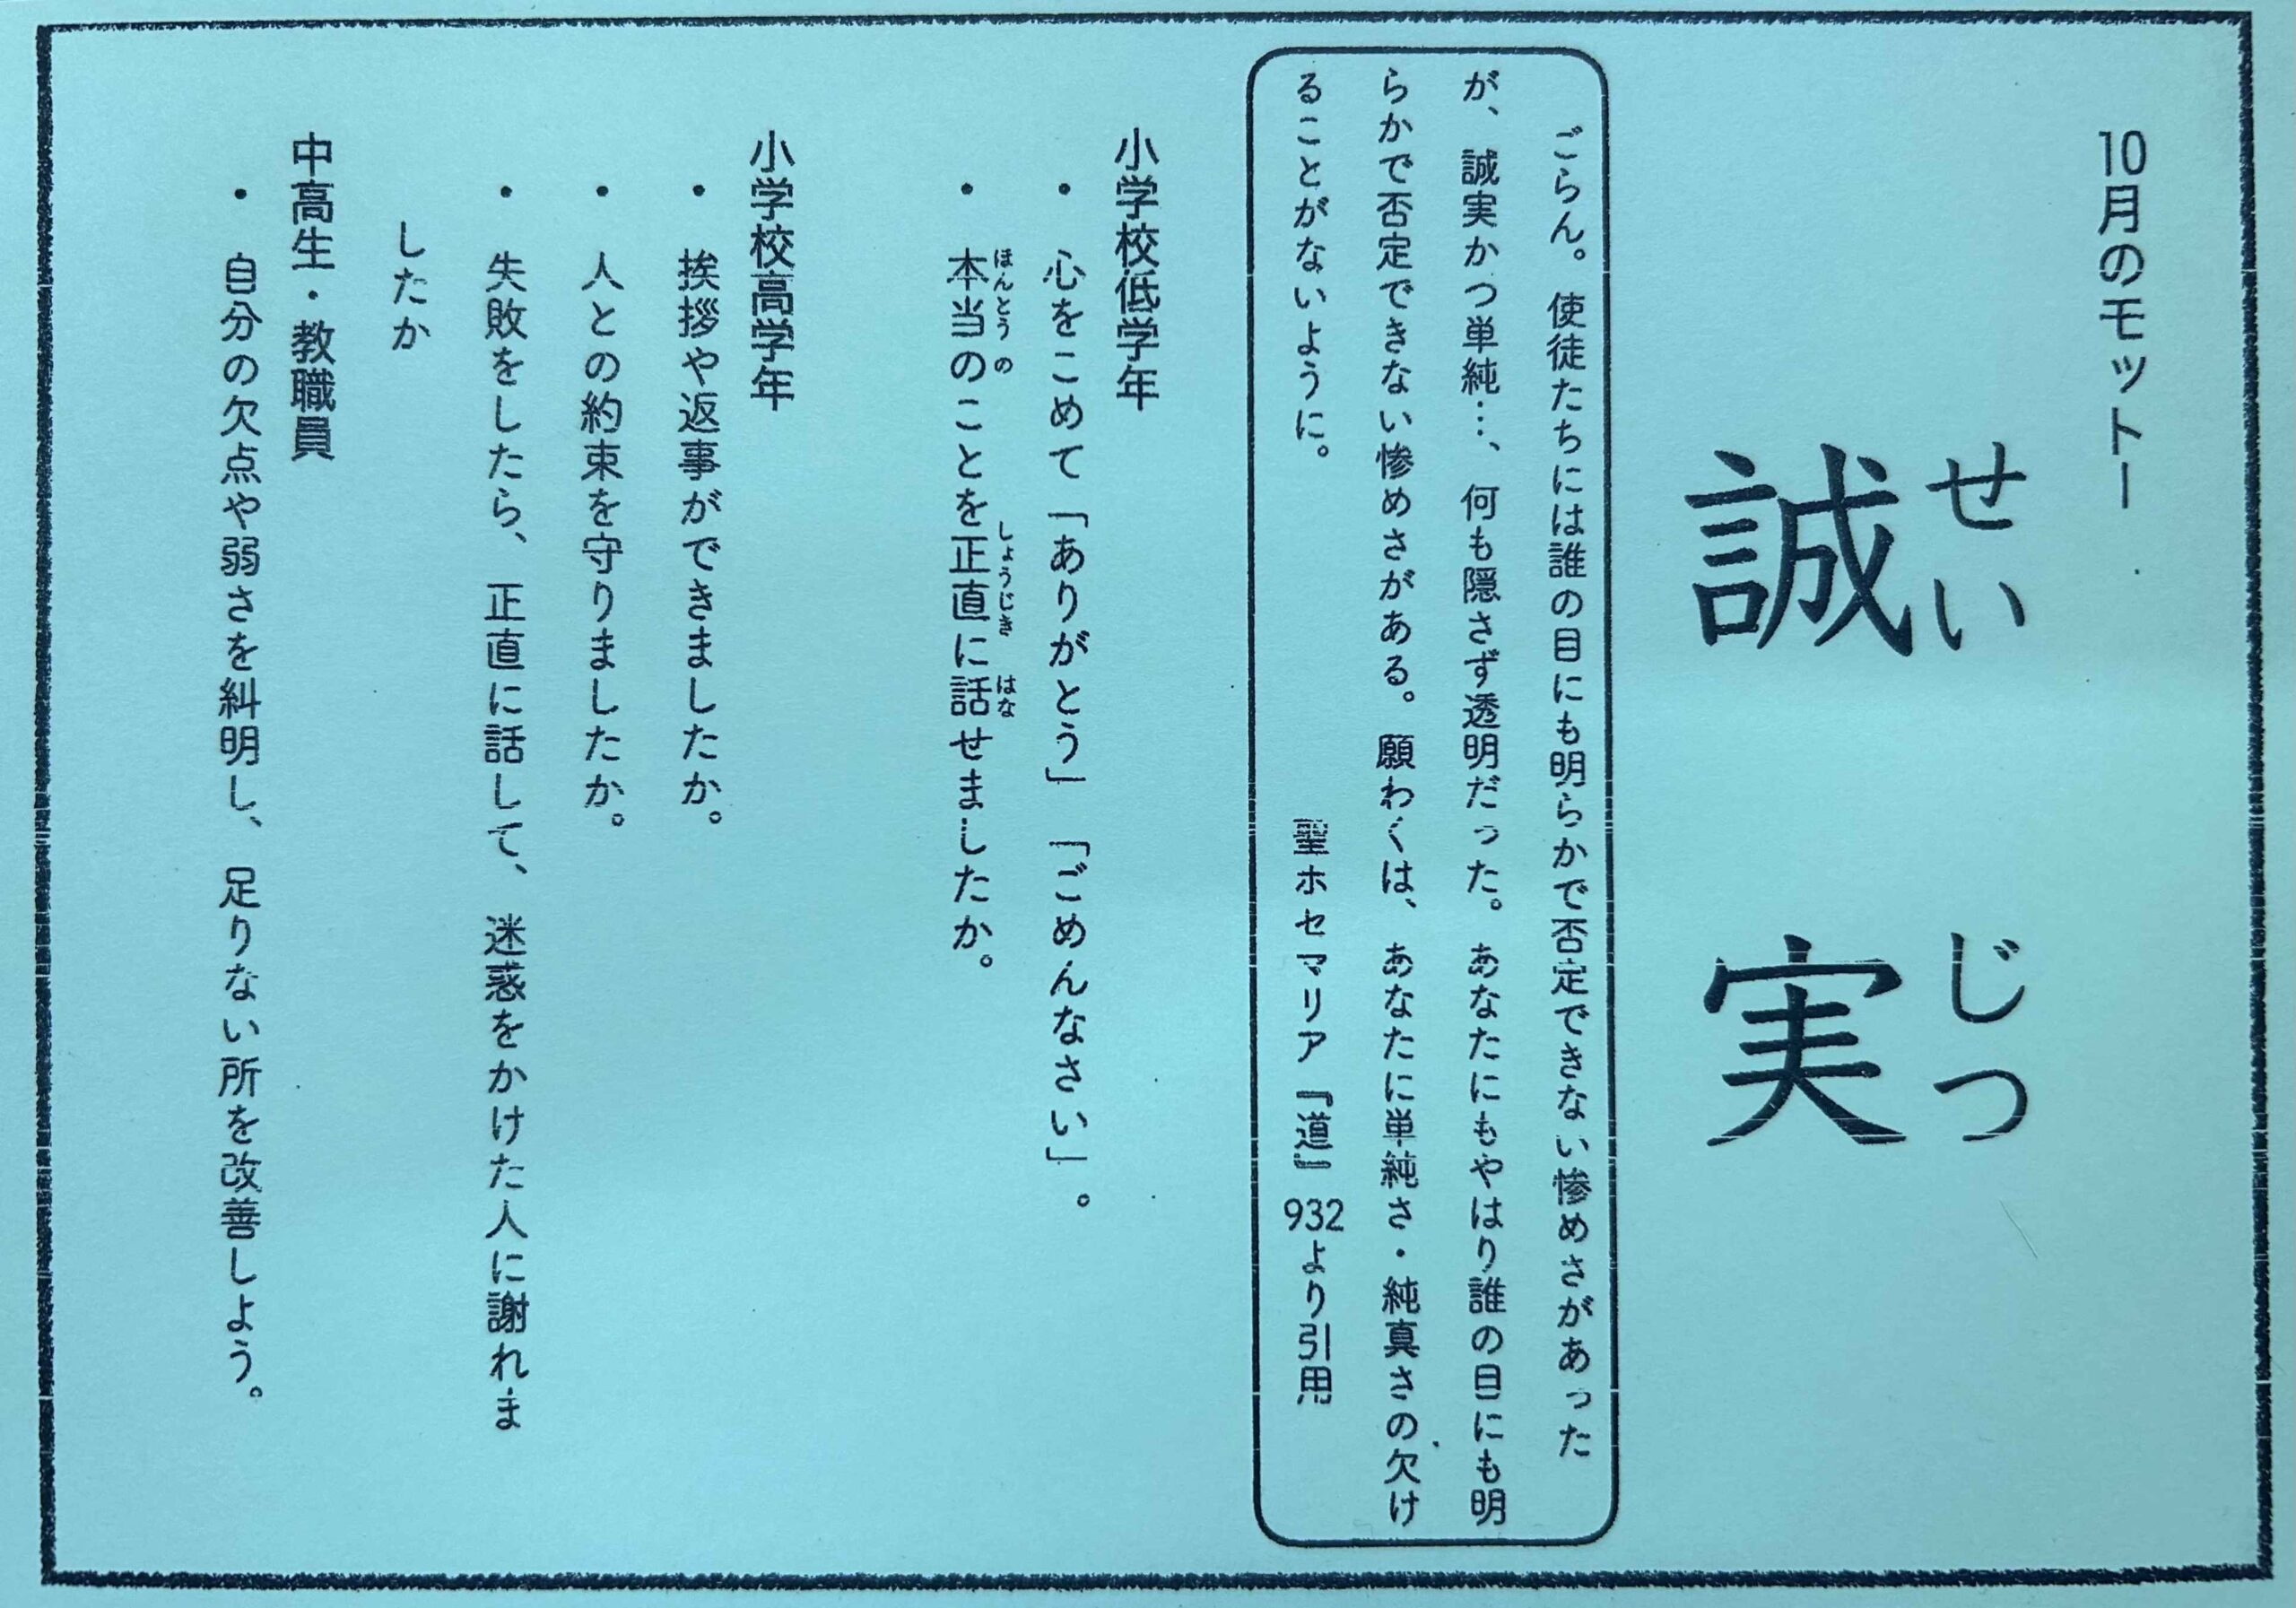 10月のモットー
せい じつ
誠 実
ごらん。使徒たちには誰の目にも明らかで否定できない惨めさがあった
が、誠実かつ単純…、何も隠さず透明だった。あなたにもやはり誰の目にも明
らかで否定できない惨めさがある。願わくは、あなたに単純さ・純真さの欠け
ることがないように。 聖ホセマリア『道』932より引用
小学校低学年
・ 心をこめて「ありがとう」「ごめんなさい」。
ほんとう の しょうじき はな
・ 本当のことを正直に話せましたか。
小学校高学年
・ 挨拶や返事ができましたか。
・ 人との約束を守りましたか。
・ 失敗をしたら、正直に話して、迷惑をかけた人に謝れま
したか
中高生・教職員
・ 自分の欠点や弱さを糾明し、足りない所を改善しよう。